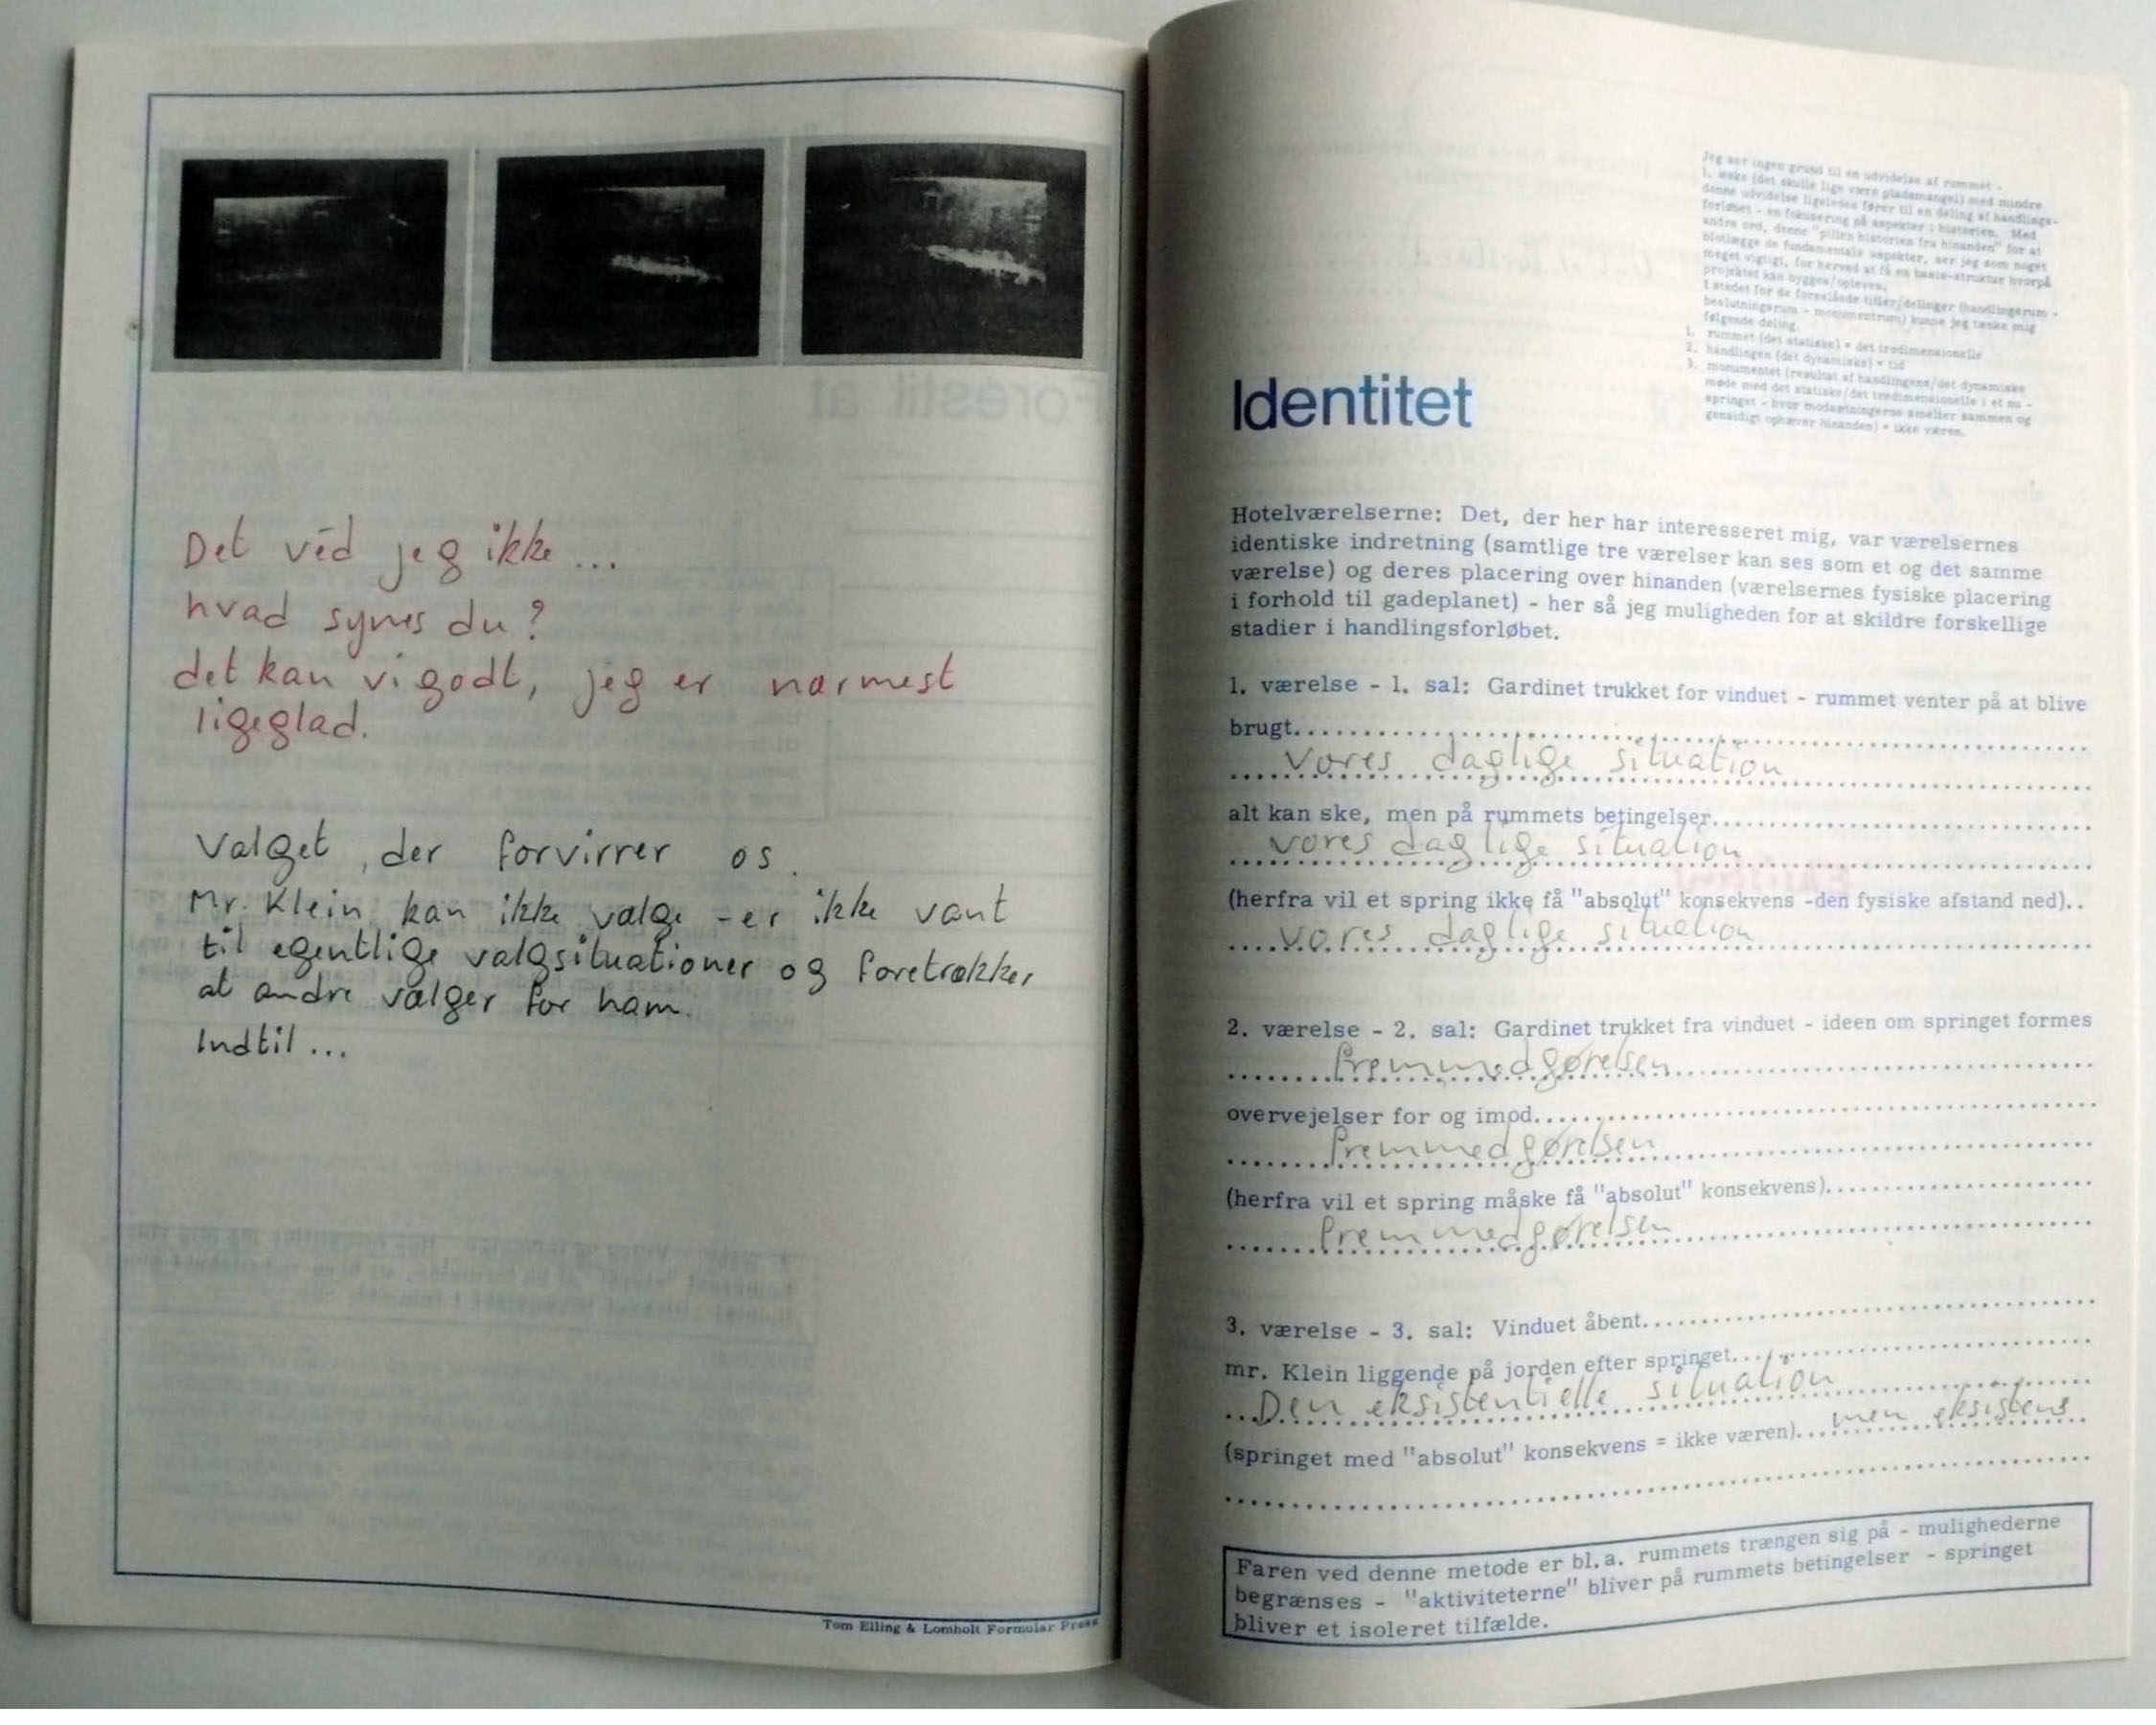 Det véd jeg ikke...
hvad synes du?
det kan vi godt, jeg er nærmest
ligeglad.
Valget, der forvirrer os.
Mr. Klein kan ikke vælge - er ikke vant
til egentlige valgsituationer og foretrækker
at andre vælger for ham.
Indtil...
Tom Elling & Lomholt Formular Press
Jeg ser ingen grund til en udvidelse af rummet -
1. maks (det skulle lige være pladsmangel) med mindre
denne udvidelse ligeledes fører til en deling af handlings-
forløbet - en fokusering på aspekter i historien. Med
andre ord, denne "pillen historien fra hinanden" for at
blotlægge de fundamentale aspekter, ser jeg som noget
meget vigtigt, for herved at få en basis-struktur hvorpå
projektet kan bygges/opleves.
I stedet for de foreslåede titler/delinger (handlingsrum -
beslutningsrum - monumentrum) kunne jeg tænke mig
følgende deling.
1. rummet (det statiske) = det tredimensionelle
2. handlingen (det dynamiske) = tid
3. monumentet (resultat af handlingens/det dynamiske
møde med det statiske/det tredimensionelle i et nu -
springet - hvor modsætningerne smelter sammen og
gensidigt ophæver hinanden) = ikke væren.
Identitet
Hotelværelserne: Det, der her har interesseret mig, var værelsernes
identiske indretning (samtlige tre værelser kan ses som et og det samme
værelse) og deres placering over hinanden (værelsernes fysiske placering
i forhold til gadeplanet) - her så jeg muligheden for at skildre forskellige
stadier i handlingsforløbet.
1. værelse - 1. sal: Gardinet trukket for vinduet - rummet venter på at blive
brugt.
vores daglige situation
alt kan ske, men på rummets betingelser.
vores daglige situation
(herfra vil et spring ikke få "absolut" konsekvens -den fysiske afstand ned)..
vores daglige situation
2. værelse - 2. sal: Gardinet trukket fra vinduet - ideen om springet formes
fremmedgørelsen
overvejelser for og imod.
fremmedgørelsen
(herfra vil et spring måske få "absolut" konsekvens).
fremmedgørelsen
3. værelse - 3. sal: Vinduet åbent.
mr. Klein liggende på jorden efter springet.
Den eksistentielle situation
(springet med "absolut" konsekvens = ikke væren)... men eksistens
Faren ved denne metode er bl.a. rummets trængen sig på - mulighederne
begrænses - "aktiviteterne" bliver på rummets betingelser - springet
bliver et isoleret tilfælde.